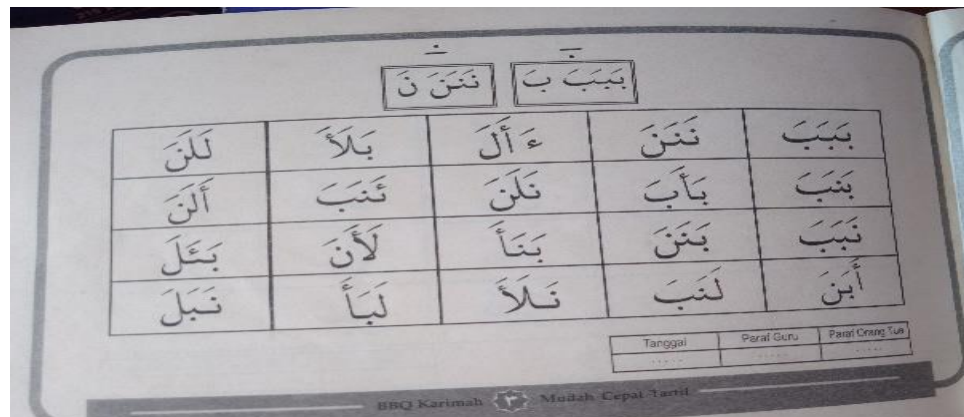 بَبَبَ بَ نَنَنَ نَ
بَبَبَ نَنَنَ ءَ أَلَ بَلَأَ لَلَنَ
بَنَبَ بَأَبَ نَلَنَ ئَنَبَ أَلَنَ
نَبَبَ بَنَنَ بَنَأَ لَأَنَ بَئَلَ
أَبَنَ لَنَبَ نَلَأَ لَبَأَ نَبَلَ
Tanggal Paraf Guru Paraf Orang Tua
..... ..... .....
BBQ Karimah ٣ Mudah Cepat Tartil